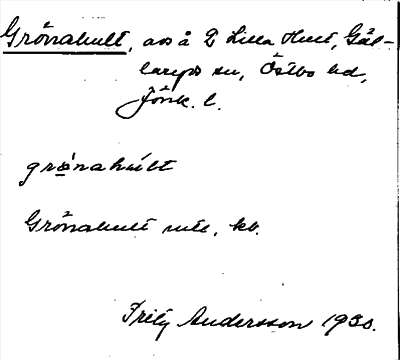 Grönahult, avs å 2 Lilla Hult, Gäl-
laryds sn, Östbo hd,
Jönk. l.
grø̀nahúlt
Grönahult mtl, kb.
Fritz Andersson 1930.